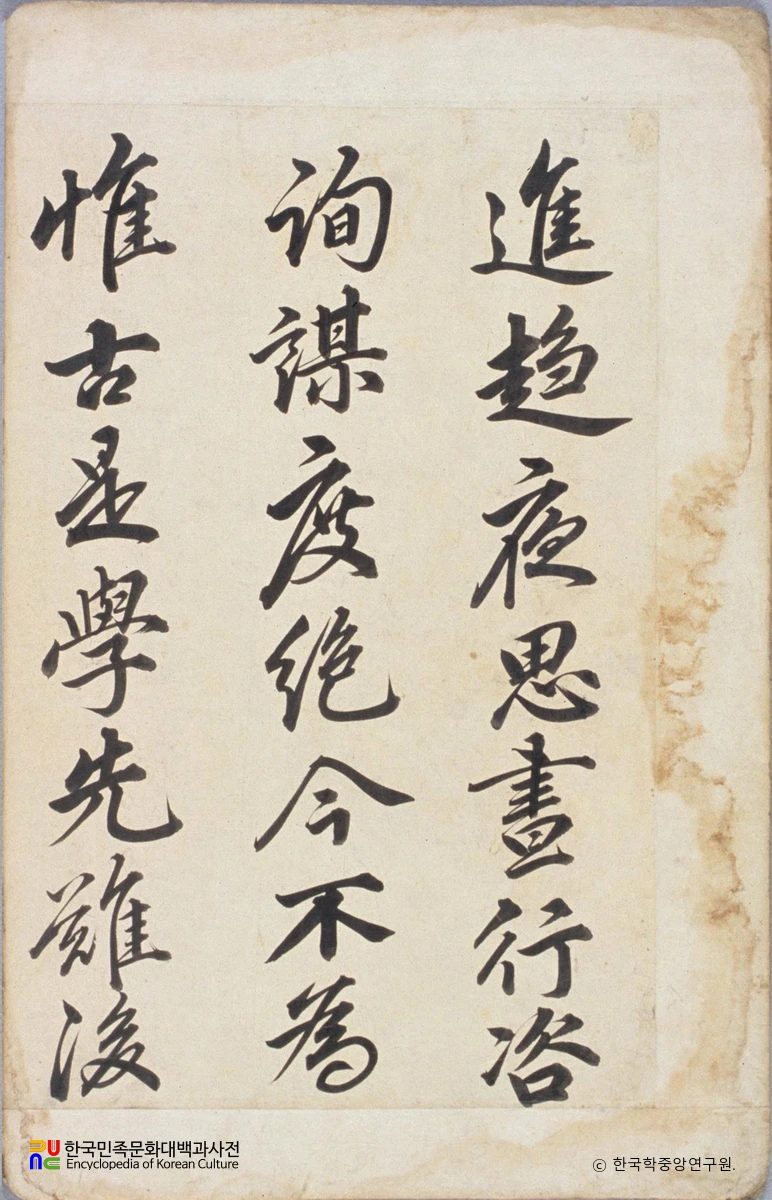 進趨夜思晝行咨
詢謀度絶今不為
惟古是學先難後
한국민족문화대백과사전
Encyclopedia of Korean Culture
© 한국학중앙연구원.